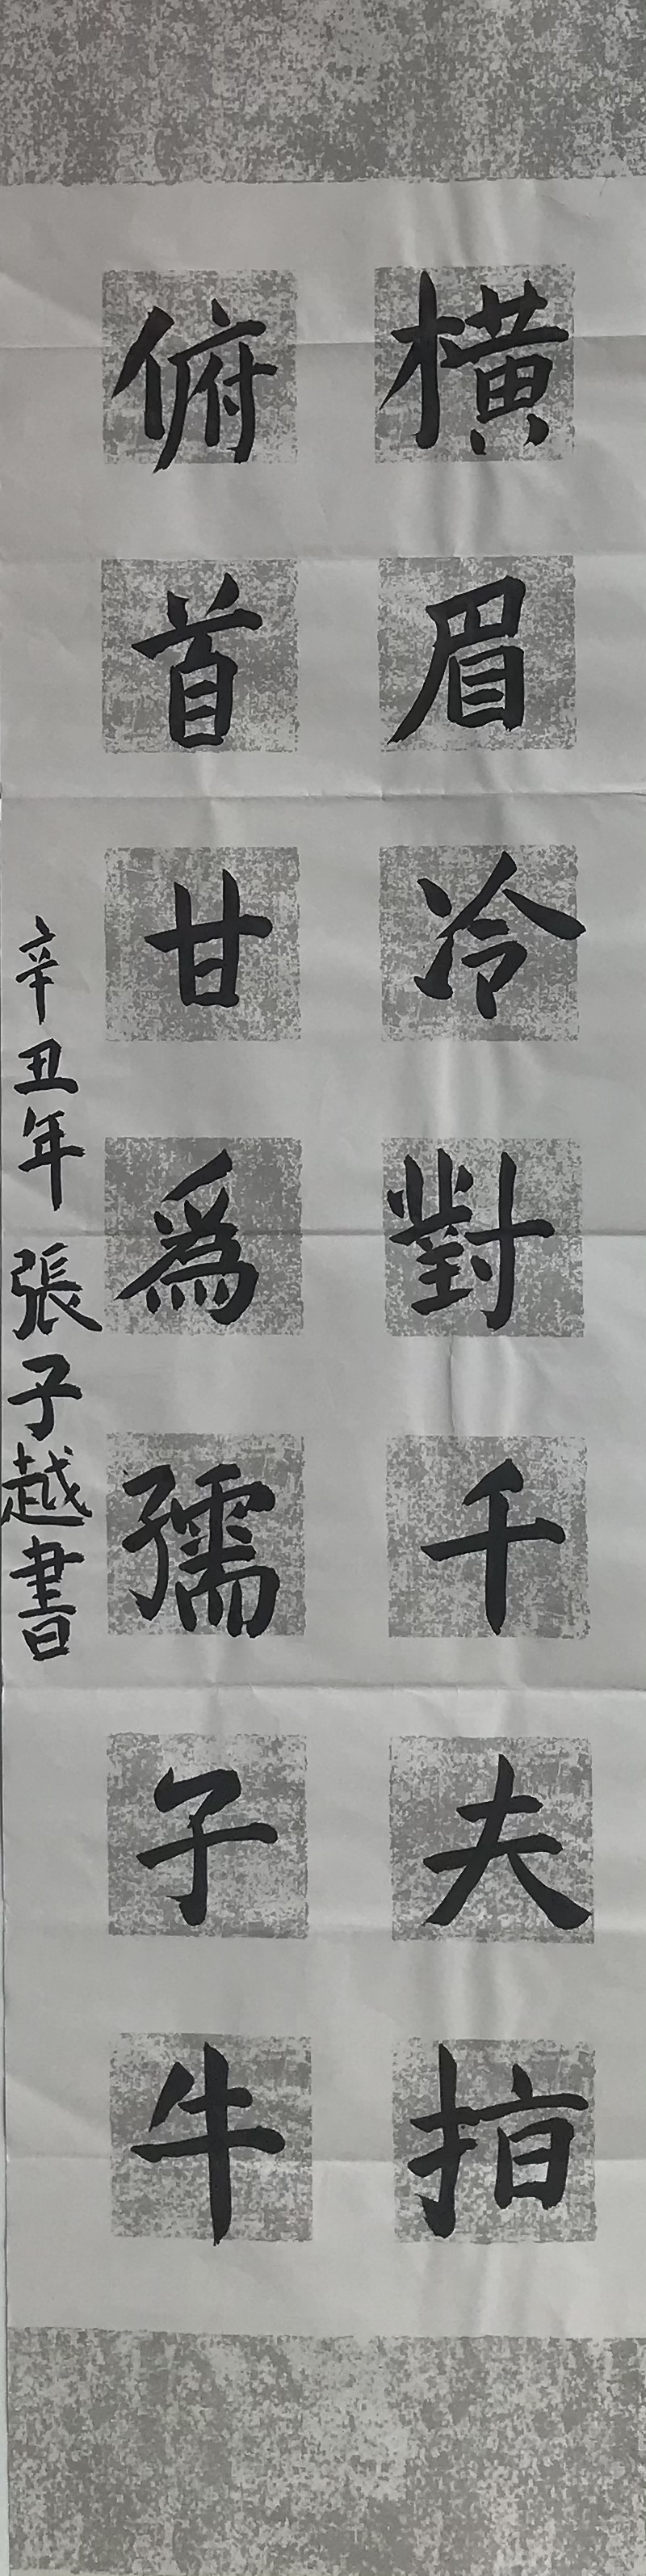 橫眉冷對千夫指
俯首甘爲孺子牛
辛丑年張子越書